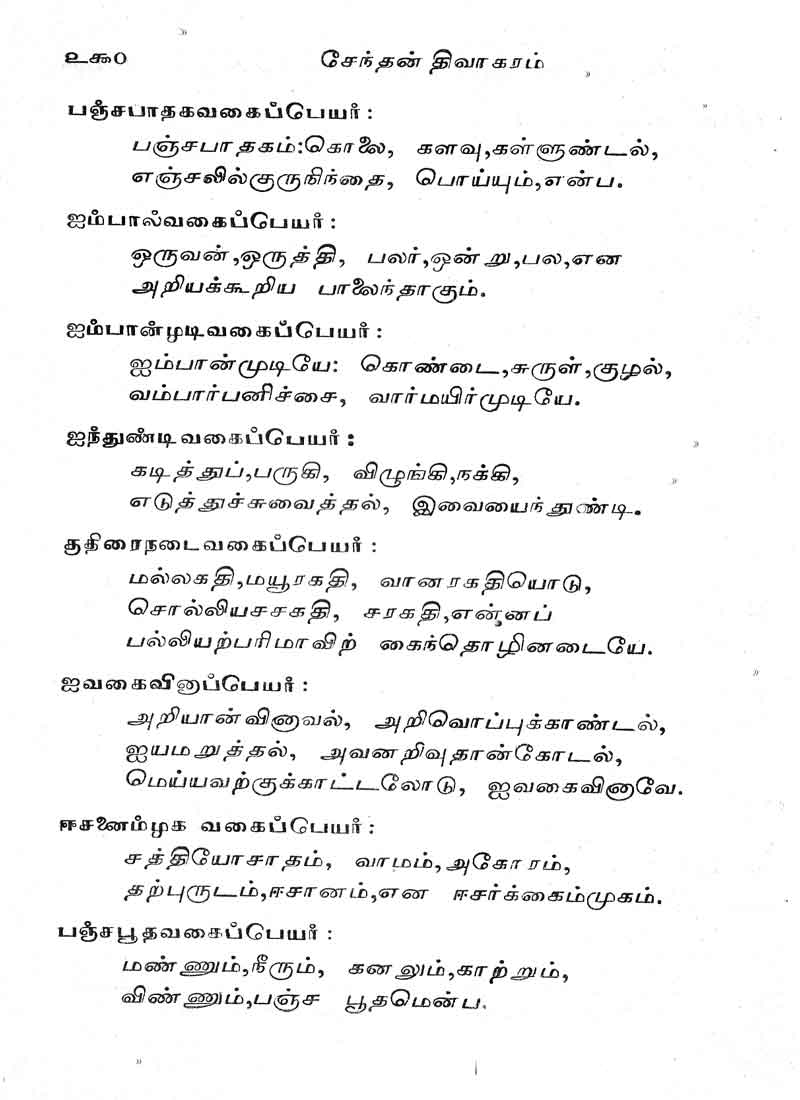 ௨௬0 சேந்தன் திவாகரம்
பஞ்சபாதகவகைப்பெயர் :
பஞ்சபாதகம்:கொலை, களவு,கள்ளுண்டல்,
எஞ்சலில்குருநிந்தை, பொய்யும்,என்ப.
ஐம்பால்வகைப்பெயர் :
ஒருவன்,ஒருத்தி, பலர்,ஒன்று,பல,என
அறியக்கூறிய பாலைந்தாகும்.
ஐம்பான்முடிவகைப்பெயர் :
ஐம்பான்முடியே: கொண்டை,சுருள்,குழல்,
வம்பார்பனிச்சை, வார்மயிர்முடியே.
ஐந்துண்டிவகைப்பெயர் :
கடித்துப்,பருகி, விழுங்கி,நக்கி,
எடுத்துச்சுவைத்தல், இவையைந்துண்டி.
குதிரைநடைவகைப்பெயர் :
மல்லகதி,மயூரகதி, வானரகதியொடு,
சொல்லியசசகதி, சரகதி,என்னப்
பல்லியற்பரிமாவிற் கைந்தொழினடையே.
ஐவகைவினாப்பெயர் :
அறியான்வினாவல், அறிவொப்புக்காண்டல்,
ஐயமறுத்தல், அவனறிவுதான்கோடல்,
மெய்யவற்குக்காட்டலோடு, ஐவகைவினாவே.
ஈசனைம்முக வகைப்பெயர் :
சத்தியோசாதம், வாமம்,அகோரம்,
தற்புருடம்,ஈசானம்,என ஈசர்க்கைம்முகம்.
பஞ்சபூதவகைப்பெயர் :
மண்ணும்,நீரும், கனலும்,காற்றும்,
விண்ணும்,பஞ்ச பூதமென்ப.